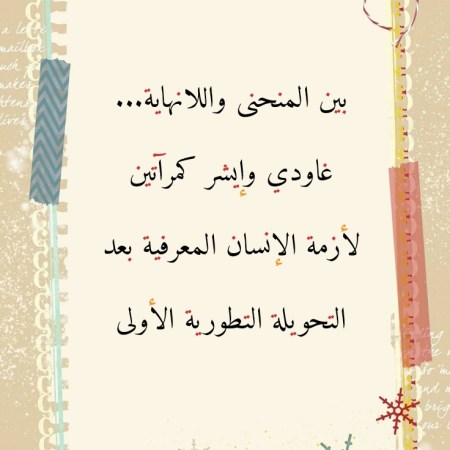 بين المنحنى واللانهاية...
غاودي وإيشر كمرآتين
لأزمة الإنسان المعرفية بعد
التحويلة التطورية الأولى